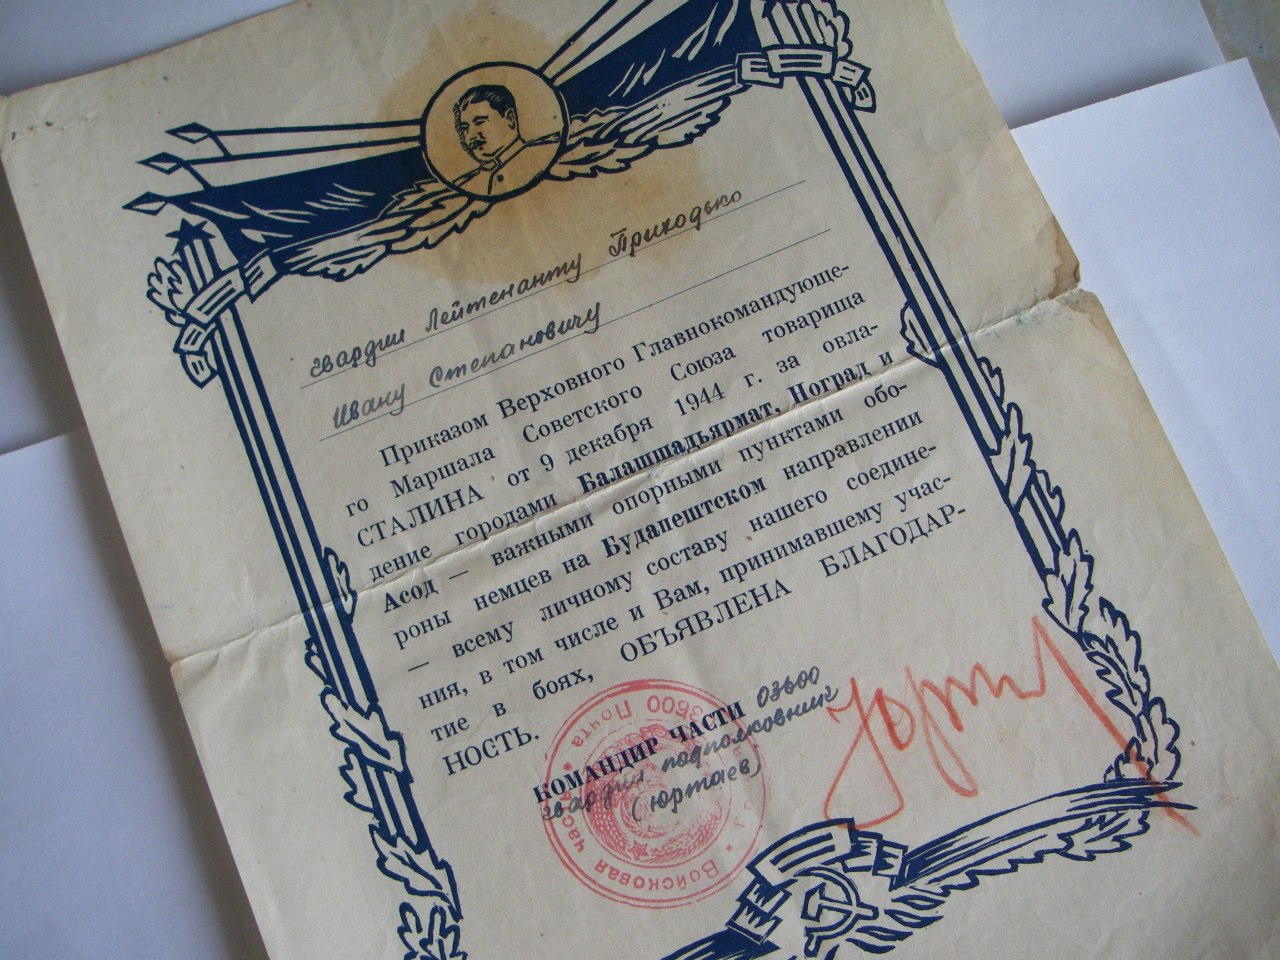 гвардии Лейтенанту Приходько
Ивану Степановичу
Приказом Верховного Главнокомандующе-
го Маршала Советского Союза товарища
СТАЛИНА от 9 декабря 1944 г. за овла-
дение городами Балашшадьярмат, Ноград и
Асод — важными опорными пунктами обо-
роны немцев на Будапештском направлении
— всему личному составу нашего соедине-
ния, в том числе и Вам, принимавшему учас-
тие в боях, ОБЪЯВЛЕНА БЛАГОДАР-
НОСТЬ.
КОМАНДИР ЧАСТИ 03600
гвардии подполковник
(Юртаев)
Войсковая часть
03600 Почта